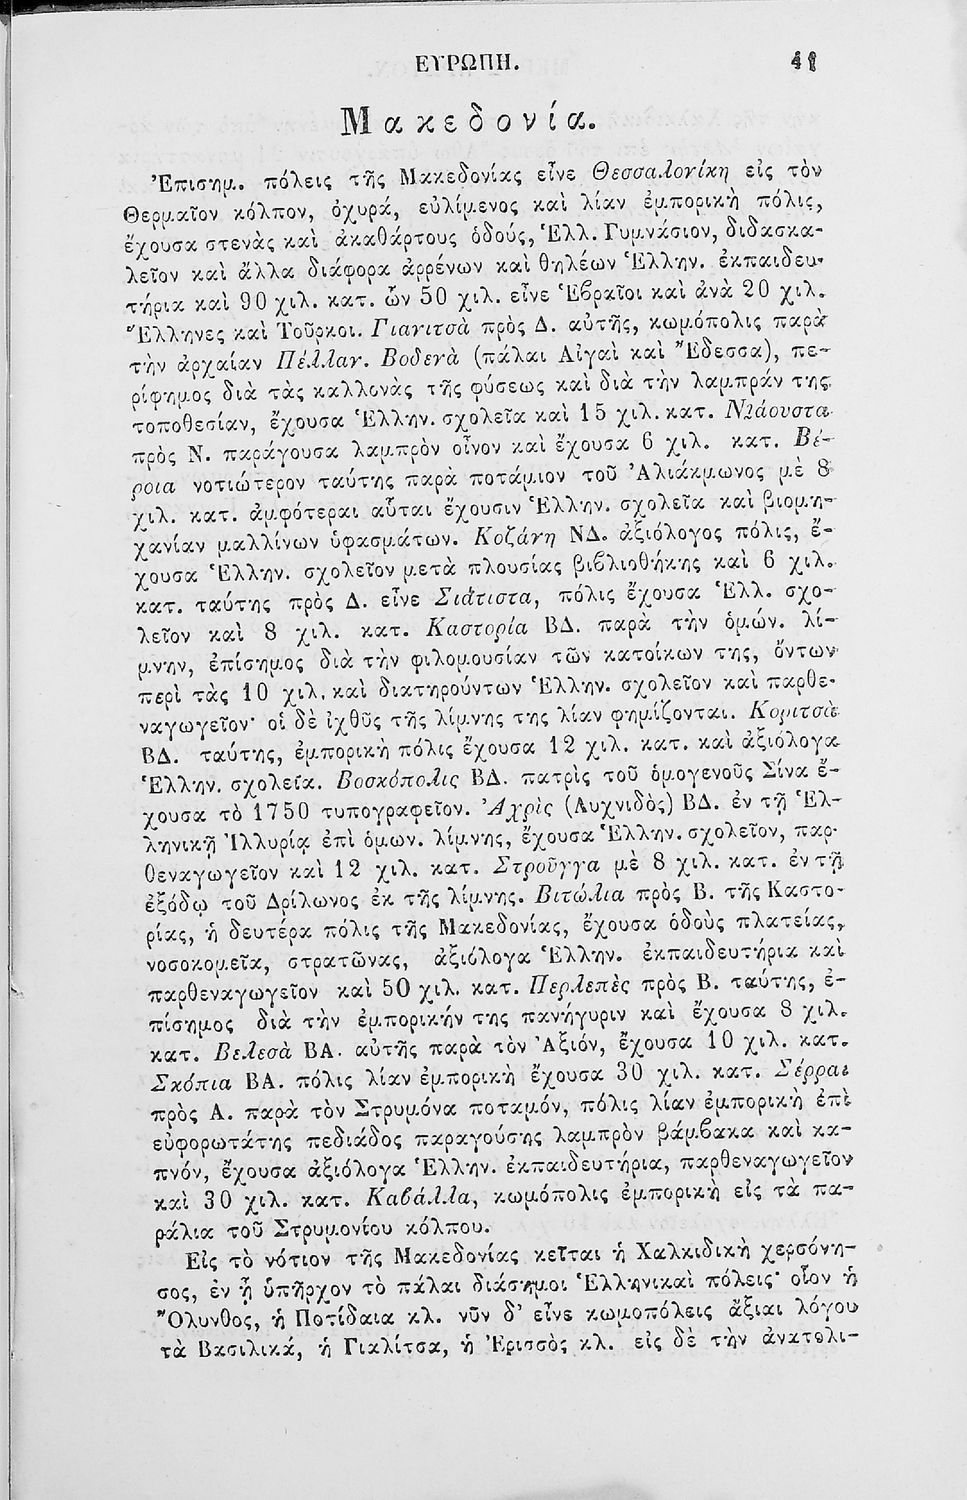 ΕΥΡΩΠΗ. 41
Μακεδονία.
Ἐπισημ. πόλεις τῆς Μακεδονίας εἶνε Θεσσαλονίκη εἰς τὸν
Θερμαῖον κόλπον, ὀχυρά, εὐλίμενος καὶ λίαν ἐμπορικὴ πόλις,
ἔχουσα στενὰς καὶ ἀκαθάρτους ὁδούς, Ἑλλ. Γυμνάσιον, διδασκα-
λεῖον καὶ ἄλλα διάφορα ἀρρένων καὶ θηλέων Ἑλλην. ἐκπαιδευ-
τήρια καὶ 90 χιλ. κατ. ὧν 50 χιλ. εἶνε Ἑβραῖοι καὶ ἀνὰ 20 χιλ.
Ἕλληνες καὶ Τοῦρκοι. Γιανιτσὰ πρὸς Δ. αὐτῆς, κωμόπολις παρὰ
τὴν ἀρχαίαν Πέλλαν. Βοδενὰ (πάλαι Αἰγαὶ καὶ Ἔδεσσα), πε-
ρίφημος διὰ τὰς καλλονὰς τῆς φύσεως καὶ διὰ τὴν λαμπράν της
τοποθεσίαν, ἔχουσα Ἑλλην. σχολεῖα καὶ 15 χιλ. κατ. Νιάουστα
πρὸς Ν. παράγουσα λαμπρὸν οἶνον καὶ ἔχουσα 6 χιλ. κατ. Βέ-
ροια νοτιώτερον ταύτης παρὰ ποτάμιον τοῦ Ἁλιάκμωνος μὲ 8
χιλ. κατ. ἀμφότεραι αὗται ἔχουσιν Ἑλλην. σχολεῖα καὶ βιομη-
χανίαν μαλλίνων ὑφασμάτων. Κοζάνη ΝΔ. ἀξιόλογος πόλις, ἔ-
χουσα Ἑλλην. σχολεῖον μετὰ πλουσίας βιβλιοθήκης καὶ 6 χιλ.
κατ. ταύτης πρὸς Δ. εἶνε Σιάτιστα, πόλις ἔχουσα Ἑλλ. σχο-
λεῖον καὶ 8 χιλ. κατ. Καστορία ΒΔ. παρὰ τὴν ὁμών. λί-
μνην, ἐπίσημος διὰ τὴν φιλομουσίαν τῶν κατοίκων της, ὄντων
περὶ τὰς 10 χιλ. καὶ διατηρούντων Ἑλλην. σχολεῖον καὶ παρθε-
ναγωγεῖον· οἱ δὲ ἰχθῦς τῆς λίμνης της λίαν φημίζονται. Κοριτσὰ
ΒΔ. ταύτης, ἐμπορικὴ πόλις ἔχουσα 12 χιλ. κατ. καὶ ἀξιόλογα
Ἑλλην. σχολεῖα. Βοσκόπολις ΒΔ. πατρὶς τοῦ ὁμογενοῦς Σίνα ἔ-
χουσα τὸ 1750 τυπογραφεῖον. Ἀχρὶς (Λυχνιδὸς) ΒΔ. ἐν τῇ Ἑλ-
ληνικῇ Ἰλλυρίᾳ ἐπὶ ὁμων. λίμνης, ἔχουσα Ἑλλην. σχολεῖον, παρ-
θεναγωγεῖον καὶ 12 χιλ. κατ. Στροῦγγα μὲ 8 χιλ. κατ. ἐν τῇ
ἐξόδῳ τοῦ Δρίλωνος ἐκ τῆς λίμνης. Βιτώλια πρὸς Β. τῆς Καστο-
ρίας, ἡ δευτέρα πόλις τῆς Μακεδονίας, ἔχουσα ὁδοὺς πλατείας,
νοσοκομεῖα, στρατῶνας, ἀξιόλογα Ἑλλην. ἐκπαιδευτήρια καὶ
παρθεναγωγεῖον καὶ 50 χιλ. κατ. Περλεπὲς πρὸς Β. ταύτης, ἐ-
πίσημος διὰ τὴν ἐμπορικήν της πανήγυριν καὶ ἔχουσα 8 χιλ.
κατ. Βελεσὰ ΒΑ. αὐτῆς παρὰ τὸν Ἀξιόν, ἔχουσα 10 χιλ. κατ.
Σκόπια ΒΑ. πόλις λίαν ἐμπορικὴ ἔχουσα 30 χιλ. κατ. Σέρραι
πρὸς Α. παρὰ τὸν Στρυμόνα ποταμόν, πόλις λίαν ἐμπορικὴ ἐπὶ
εὐφορωτάτης πεδιάδος παραγούσης λαμπρὸν βάμβακα καὶ κα-
πνόν, ἔχουσα ἀξιόλογα Ἑλλην. ἐκπαιδευτήρια, παρθεναγωγεῖον
καὶ 30 χιλ. κατ. Καβάλλα, κωμόπολις ἐμπορικὴ εἰς τὰ πα-
ράλια τοῦ Στρυμονίου κόλπου.
Εἰς τὸ νότιον τῆς Μακεδονίας κεῖται ἡ Χαλκιδικὴ χερσόνη-
σος, ἐν ᾗ ὑπῆρχον τὸ πάλαι διάσημοι Ἑλληνικαὶ πόλεις· οἷον ἡ
Ὄλυνθος, ἡ Ποτίδαια κλ. νῦν δ' εἶνε κωμοπόλεις ἄξιαι λόγου
τὰ Βασιλικά, ἡ Γιαλίτσα, ἡ Ἐρισσὸς κλ. εἰς δὲ τὴν ἀνατολι-